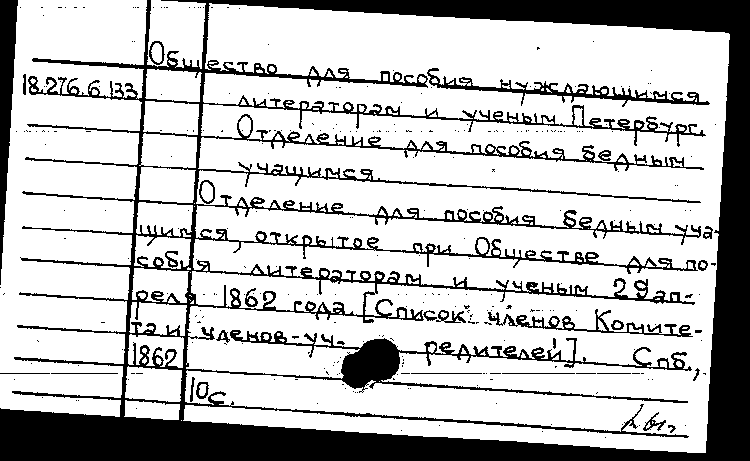 Общество для пособия нуждающимся
18.276.6.133
литераторам и ученым Петербург.
Отделение для пособия бедным
учащимся.
Отделение для пособия бедным уча-
щимся, открытое при Обществе для по-
собия литераторам и ученым 29 ап-
реля 1862 года. [Список членов Комите-
та и членов-уч- редителей]. Спб.,
1862
10с.